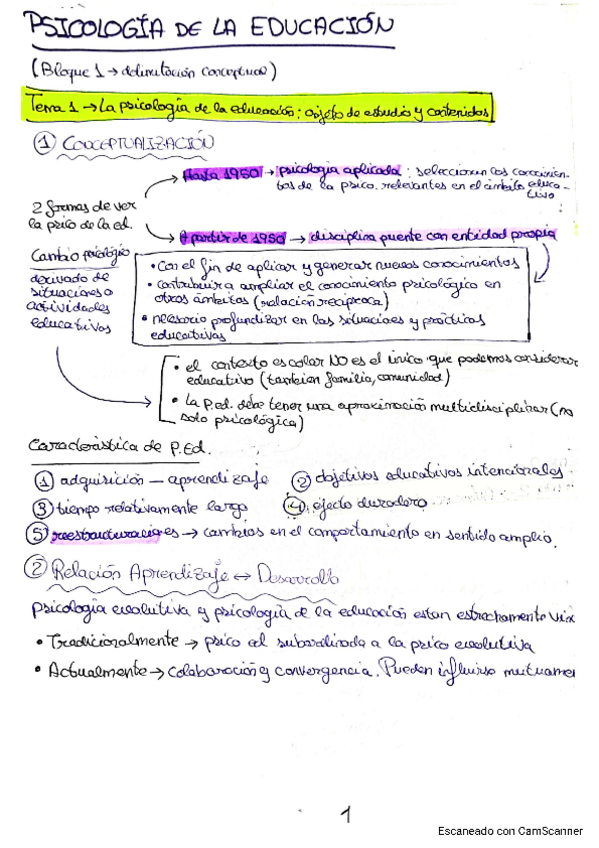 PSICOLOGÍA DE LA EDUCACIÓN
(Bloque 1 → delimitación conceptual)
Tema 1 → La psicología de la educación: objeto de estudio y contenidos
① CONCEPTUALIZACIÓN
2 formas de ver
la psico de la ed.
Hasta 1950 → psicología aplicada: seleccionan los conocimien-
tos de la psico. relevantes en el ámbito educa-
tivo
A partir de 1950 → disciplina puente con entidad propia
• Con el fin de aplicar y generar nuevos conocimientos
• contribuir a ampliar el conocimiento psicológico en
otros ámbitos (relación recíproca)
• necesario profundizar en las situaciones y prácticas
educativas
Cambio psicológico
derivado de
situaciones o
actividades
educativas
• el contexto escolar NO es el único que podemos considerar
educativo (tambien familia, comunidad)
• La P.ed. debe tener una aproximación multidisciplinar (no
solo psicológica)
Característica de P.Ed.
① adquisición — aprendizaje ② objetivos educativos intencionales
③ tiempo relativamente largo ④ efecto duradero
⑤ reestructuraciones → cambios en el comportamiento en sentido amplio.
② Relación Aprendizaje ↔ Desarrollo
psicología evolutiva y psicología de la educación estan estrechamente vin
• Tradicionalmente → psico ed subordinada a la psico evolutiva
• Actualmente → colaboración y convergencia. Pueden influirse mutuamen
1
Escaneado con CamScanner